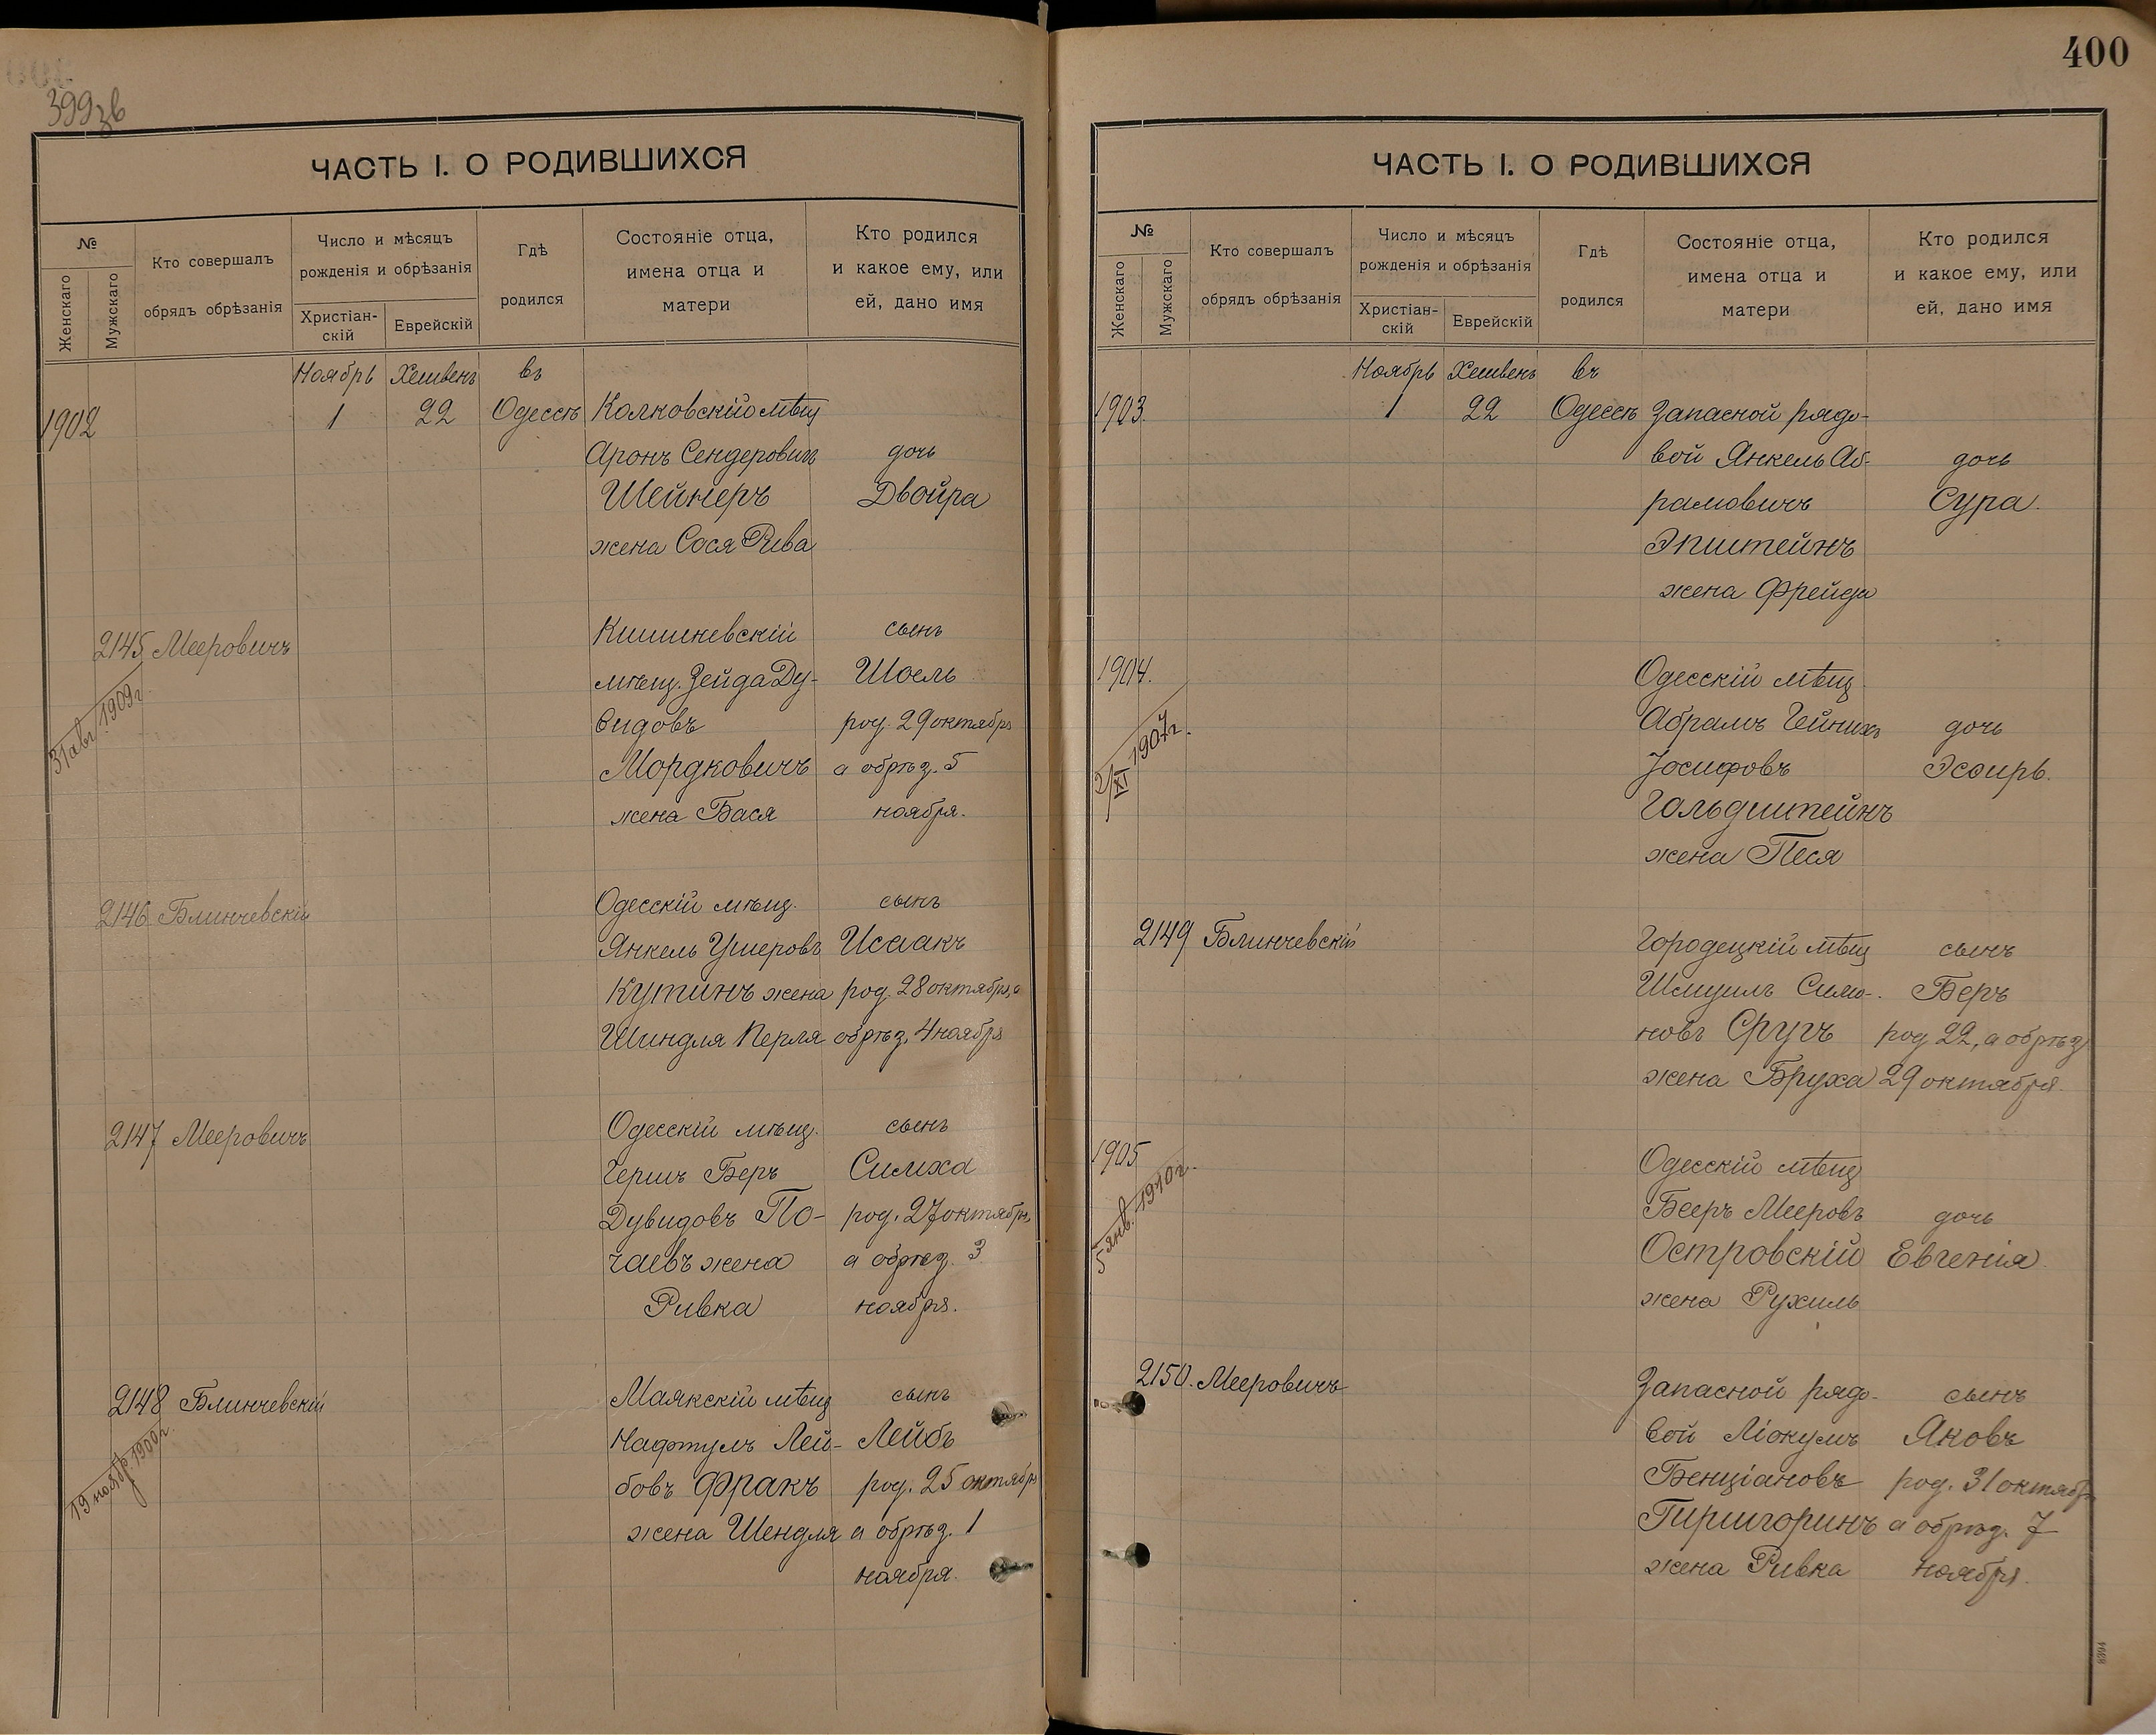 399 зв
ЧАСТЬ I. О РОДИВШИХСЯ
№
Женскаго
Мужскаго
Кто совершалъ
обрядъ обрѣзанія
Число и мѣсяцъ
рожденія и обрѣзанія
Христіан-
скій
Еврейскій
Гдѣ
родился
Состояніе отца,
имена отца и
матери
Кто родился
и какое ему, или
ей, дано имя
Ноябрь Хешвенъ въ
1902 1 22 Одессѣ Колковскій мѣщ
Аронъ Сендеровичъ дочь
Шейнеръ Двойра
жена Сося Рива
Кишиневскій сынъ
2145 Мееровичъ
мѣщ. Зейда Ду- Шоель
31 авг. 1909 г.
видовъ род. 29 октября
Мордковичъ а обрѣз. 5
жена Бася ноября.
Одесскій мѣщ. сынъ
2146 Блинчевскій
Янкель Ушеровъ Исаакъ
Кутинъ жена род. 28 октября, а
Шиндля Перля обрѣз. 4 ноября
Одесскій мѣщ. сынъ
2147 Мееровичъ
Гершъ Беръ Симха
Дувидовъ По- род. 27 октября,
чаевъ жена а обрѣз. 3
Ривка ноября.
2148 Блинчевскій Маякскій мѣщ сынъ
19 ноябр. 1900 г.
Нафтулъ Лей- Лейбъ
бовъ Фракъ род. 25 октября
жена Шендля а обрѣз. 1
ноября.
400
ЧАСТЬ I. О РОДИВШИХСЯ
№
Женскаго
Мужскаго
Кто совершалъ
обрядъ обрѣзанія
Число и мѣсяцъ
рожденія и обрѣзанія
Христіан-
скій
Еврейскій
Гдѣ
родился
Состояніе отца,
имена отца и
матери
Кто родился
и какое ему, или
ей, дано имя
Ноябрь Хешвенъ въ
1903. 1 22 Одессѣ Запасной рядо-
вой Янкель Аб- дочь
рамовичъ Сура.
Эпштейнъ
жена Фрейда
1904. Одесскій мѣщ.
2/XI 1907 г.
Абрамъ Гейнихъ дочь
Іосифовъ Эсѳирь.
Гольдштейнъ
жена Песя
2149 Блинчевскій Городецкій мѣщ сынъ
Шмуилъ Симо-. Беръ
новъ Сругъ род 22, а обрѣз
жена Бруха 29 октября.
1905 Одесскій мѣщ
5 янв. 1910 г.
Бееръ Мееровъ дочь
Островскій Евгенія.
жена Рухиль
2150. Мееровичъ Запасной рядо- сынъ
вой Яковъ
Бенціановъ род. 31 октября
Гиршгоринъ а обрѣз. 7
жена Ривка ноября.